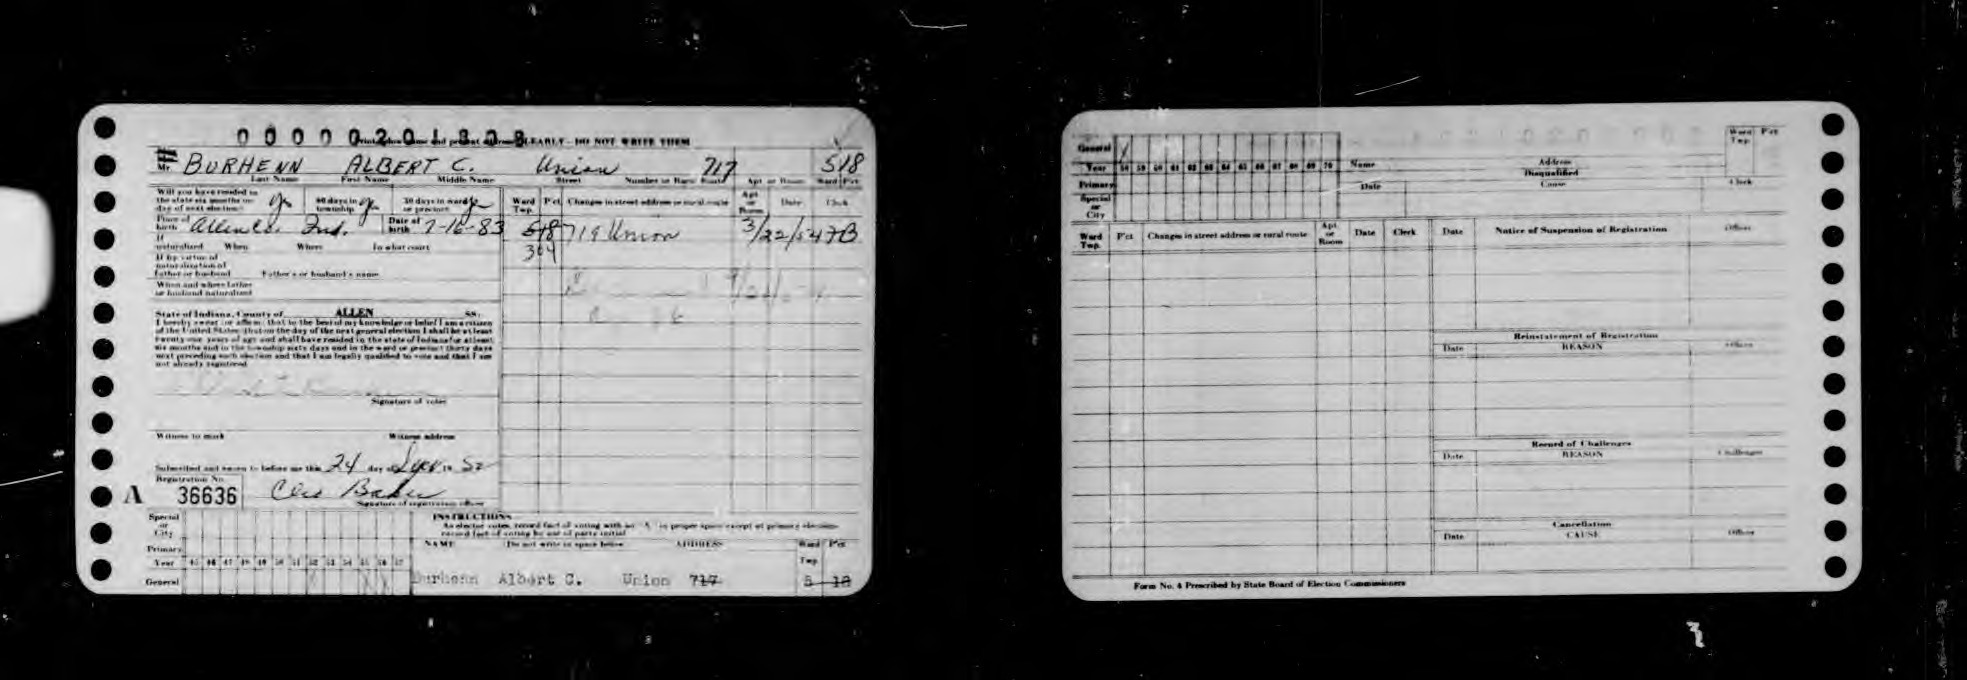 0 0 0 0 0 2 0 1 3 0 8
CLEARLY - DO NOT WRITE THEM
Mr. BURHENN ALBERT C. Union 717 518
Last Name First Name Middle Name Street Number or Rural Route Apt or Room Ward P'ct
Will you have resided in the state six months on day of next election? yes 60 days in township yes 30 days in ward or precinct yes
Place of birth Allen Co. Ind. Date of birth 7-16-83
If naturalized When Where In what court
If by virtue of naturalization of father or husband Father's or husband's name
When and where father or husband naturalized
State of Indiana, County of ALLEN SS:
I hereby swear (or affirm) that to the best of my knowledge or belief I am a citizen
of the United States that on the day of the next general election I shall be at least
twenty-one years of age and shall have resided in the state of Indiana for at least
six months and in the township sixty days and in the ward or precinct thirty days
next preceding such election and that I am legally qualified to vote and that I am
not already registered
Signature of voter
Witness to mark Witness address
Subscribed and sworn to before me this 24 day of 19 52
Registration No.
A 36636 Cleo Baker
Signature of registration officer
Ward Twp. P'ct Changes in street address or rural route Apt or Room Date Clerk
518 719 Union 3/22/54 7B
304
Special or City
Primary
Year 45 46 47 48 49 50 51 52 53 54 55 56 57
General
INSTRUCTIONS
As elector votes, record fact of voting with an "X" in proper space except at primary election
record fact of voting by use of party initial
NAME Do not write in space below ADDRESS Ward Twp P'ct
Burhenn Albert C. Union 717 5 18
General
Year 58 59 60 61 62 63 64 65 66 67 68 69 70
Primary
Special or City
Name Address Ward Twp. P'ct
Disqualified
Date Cause Clerk
Ward Twp. P'ct Changes in street address or rural route Apt or Room Date Clerk
Date Notice of Suspension of Registration Officer
Reinstatement of Registration
Date REASON Officer
Record of Challenges
Date REASON Challenger
Cancellation
Date CAUSE Officer
Form No. 4 Prescribed by State Board of Election Commissioners